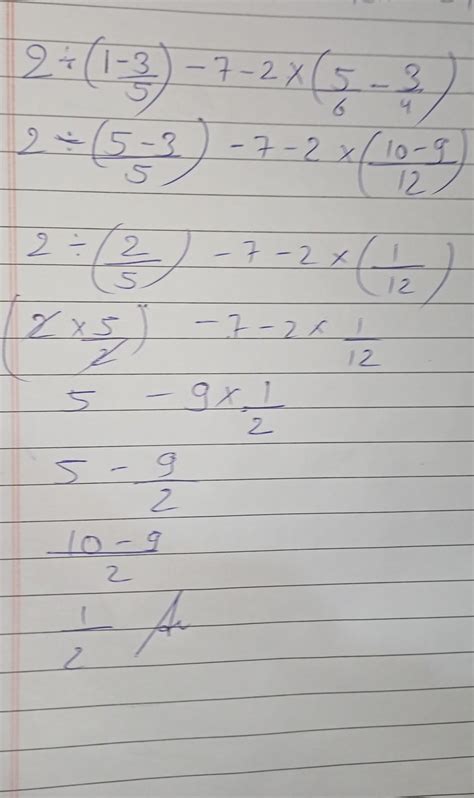 2 ÷ (1 - 3/5) - 7 - 2 × (5/6 - 3/4)
2 ÷ (5 - 3/5) - 7 - 2 × (10 - 9/12)
2 ÷ (2/5) - 7 - 2 × (1/12)
(2 × 5/2) - 7 - 2 × 1/12
5 - 9 × 1/2
5 - 9/2
10 - 9/2
1/2